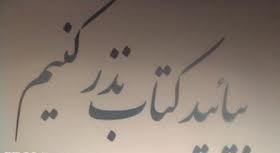 بیائید کتاب نذر کنیم